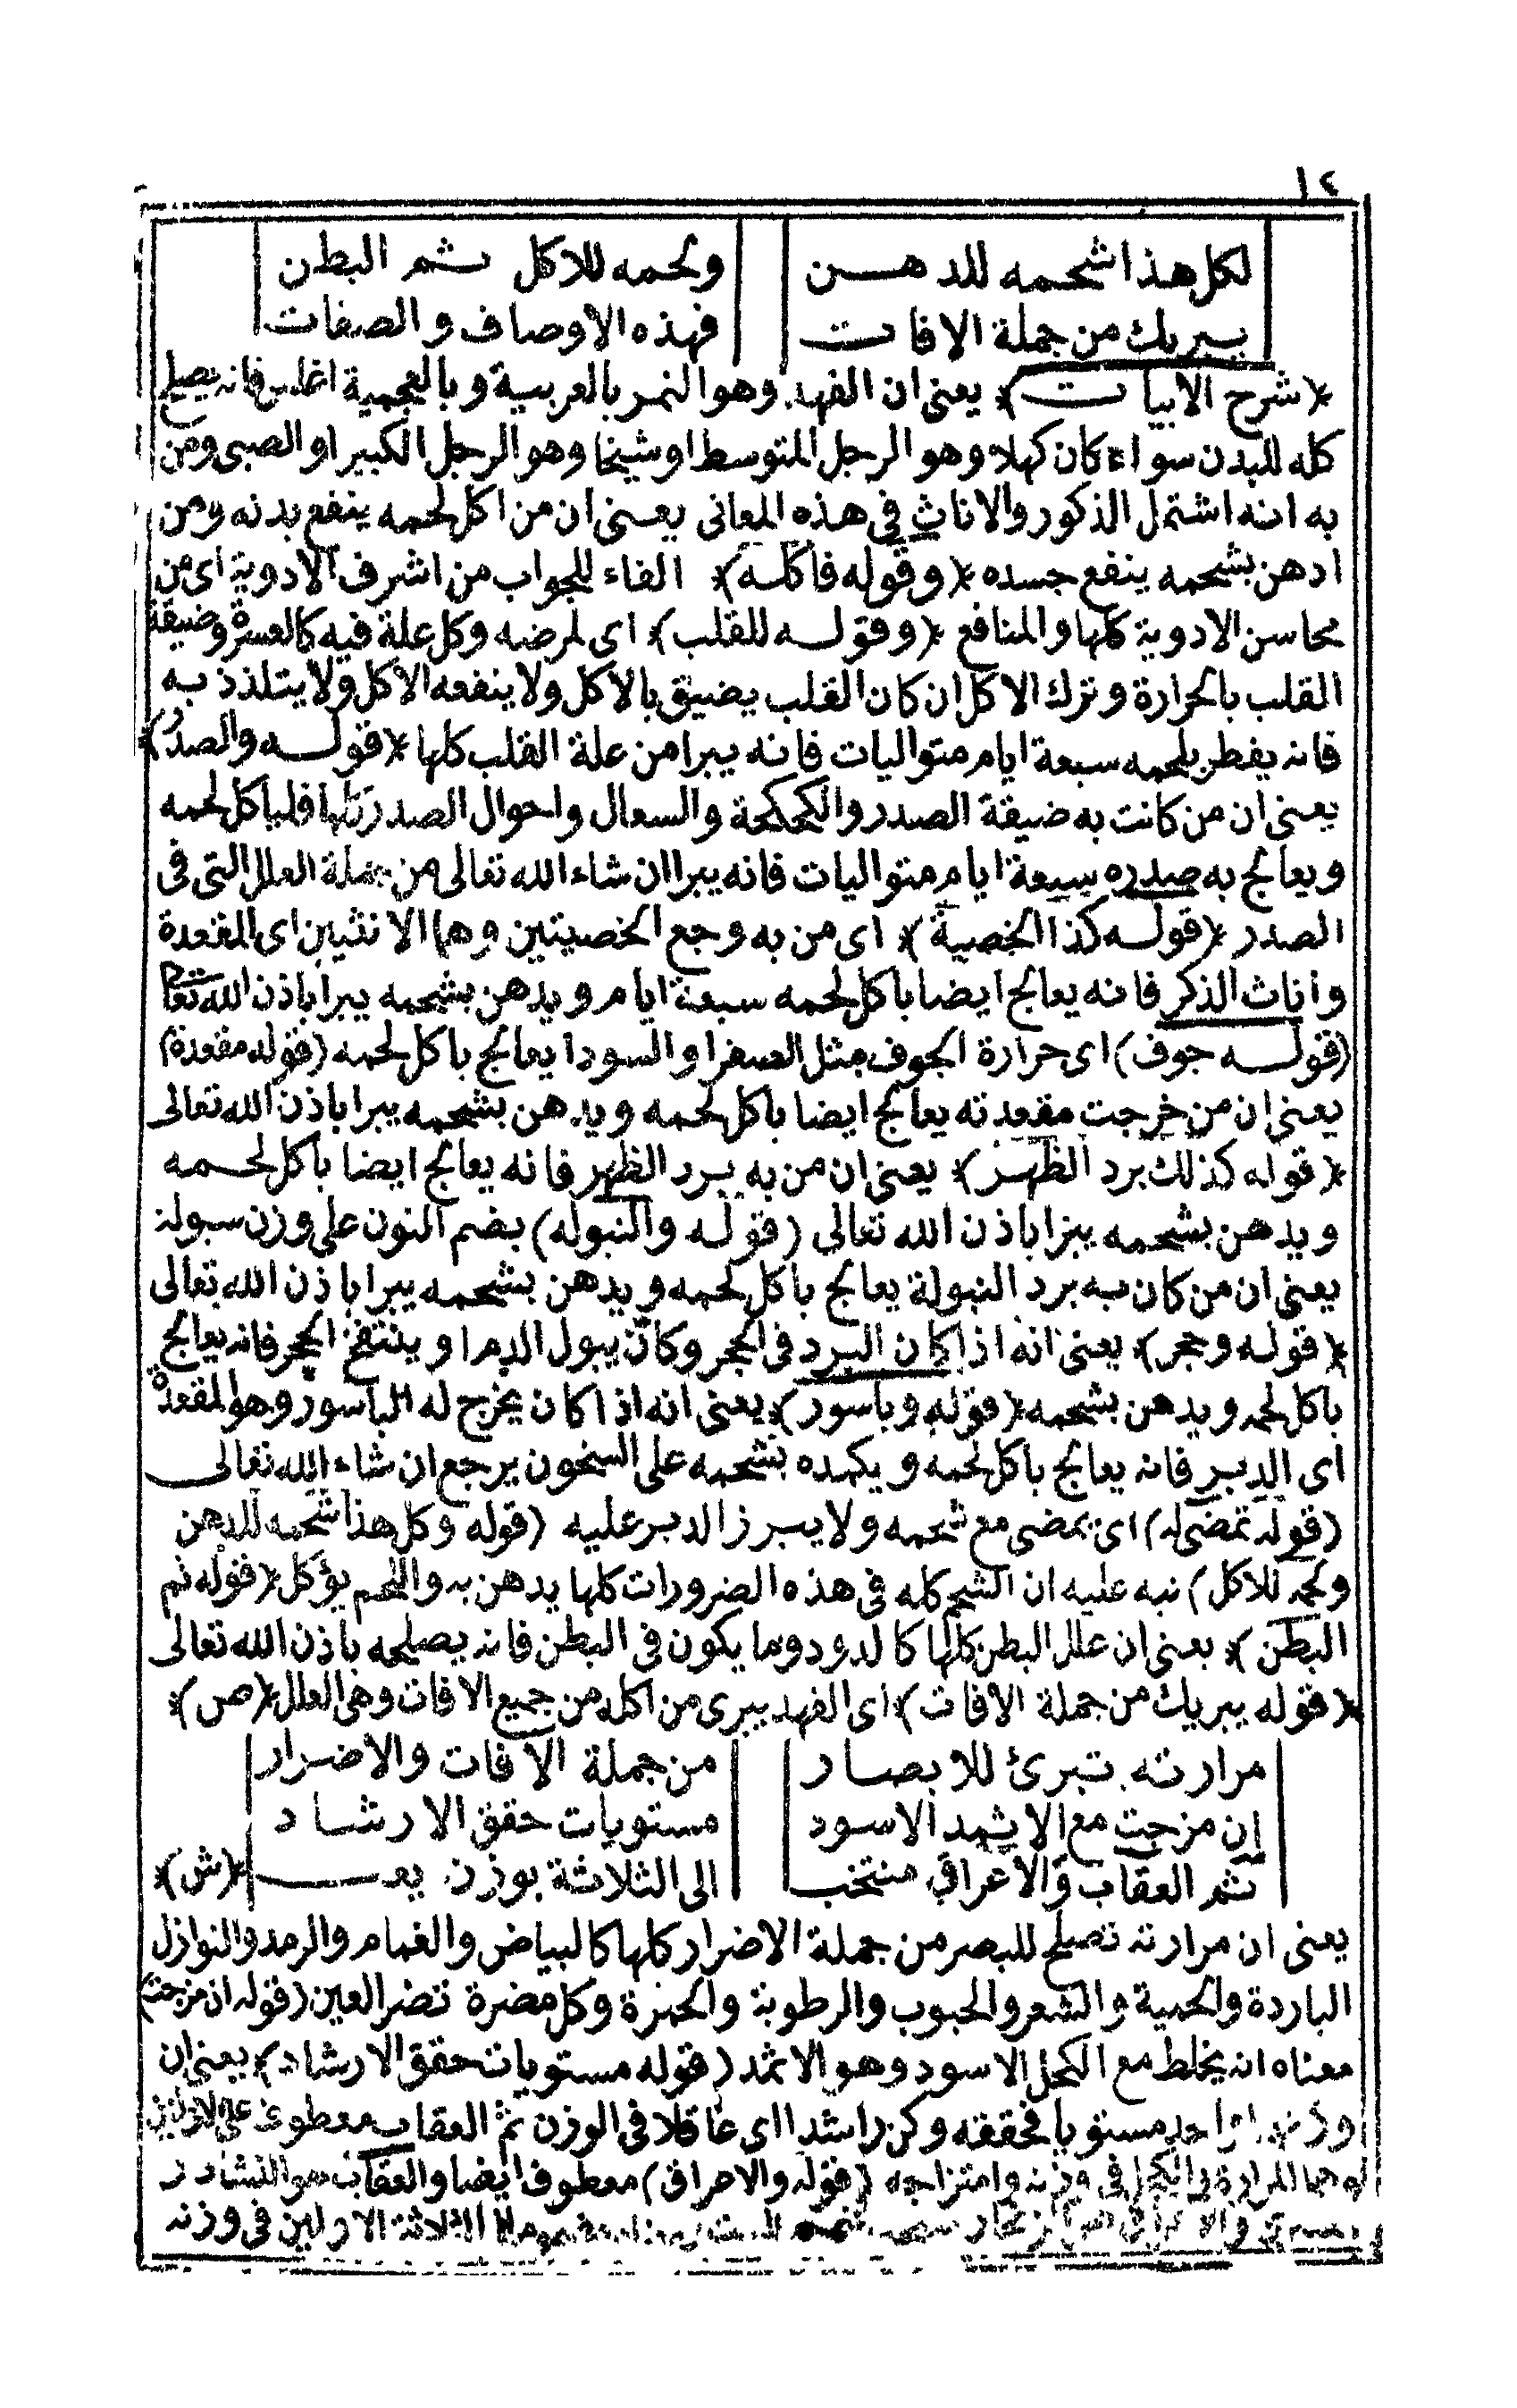 ١٤
لكل هذا شحمه للدهن ولحمه للاكل ثم البطن
يبريك من جملة الافات فهذه الاوصاف والصفات
﴿شرح الابيات﴾ يعنى ان الفهد وهو النمر بالعربية وبالعجمية اغلس فانه يصلح
كله للبدن سواء كان كهلا وهو الرجل المتوسط او شيخا وهو الرجل الكبير او الصبى ومن
به انه اشتمل الذكور والاناث فى هذه المعانى يعنى ان من اكل لحمه ينفع بدنه ومن
ادهن بشحمه ينفع جسده ﴿وقوله فاكله﴾ الفاء للجواب من اشرف الادوية اى من
محاسن الادوية كلها والمنافع ﴿وقوله للقلب﴾ اى لمرضه وكل علة فيه كالعسرة وضيقة
القلب بالحرارة وترك الاكل ان كان القلب يضيق بالاكل ولا ينفعه الاكل ولا يتلذذ به
فانه يفطر بلحمه سبعة ايام متواليات فانه يبرا من علة القلب كلها ﴿قوله والصدر﴾
يعنى ان من كانت به ضيقة الصدر والكحكحة والسعال واحوال الصدر كلها فليا كل لحمه
ويعالج به صدره سبعة ايام متواليات فانه يبرا ان شاء الله تعالى من جملة العلل التى فى
الصدر ﴿قوله كذا الخصية﴾ اى من به وجع الخصيتين وهما الانثيين اى المقعدة
واناث الذكر فانه يعالج ايضا باكل لحمه سبعة ايام ويدهن بشحمه يبرا باذن الله تعالى
(قوله جوف) اى حرارة الجوف مثل الصفرا والسودا يعالج باكل لحمه (قوله مقعدة)
يعنى ان من خرجت مقعدته يعالج ايضا باكل لحمه ويدهن بشحمه يبرا باذن الله تعالى
﴿قوله كذلك برد الظهر﴾ يعنى ان من به برد الظهر فانه يعالج ايضا باكل لحمه
ويدهن بشحمه يبرا باذن الله تعالى (قوله والنبوله) بضم النون على وزن سبولة
يعنى ان من كان به برد النبولة يعالج باكل لحمه ويدهن بشحمه يبرا باذن الله تعالى
﴿قوله وحجر﴾ يعنى انه اذا كان البرد فى الحجر وكان يبول الدم او ينتفخ الحجر فانه يعالج
باكل لحمه ويدهن بشحمه ﴿قوله وباسور﴾ يعنى انه اذا كان يخرج له الباسور وهو المقعدة
اى الدبر فانه يعالج باكل لحمه ويكمده بشحمه على السخون يرجع ان شاء الله تعالى
(قوله تمضى له) اى يمضى مع شحمه ولا يبرز الدبر عليه (قوله وكل هذا شحمه للدهن
ولحمه للاكل) نبه عليه ان الشحم كله فى هذه الضرورات كلها يدهن به واللحم يؤكل ﴿قوله ثم
البطن﴾ يعنى ان علل البطن كلها كالدود وما يكون فى البطن فانه يصلحه باذن الله تعالى
﴿قوله يبريك من جملة الافات﴾ اى الفهد يبرى من اكله من جميع الافات وهى العلل ﴿ص﴾
مرارته تبرئ للابصار من جملة الافات والاضرار
ان مزجت مع الاثمد الاسود مستويات حقق الارشاد
ثم العقاب والاعراق منتخب الى الثلاثة بوزن يعـ ﴿ش﴾
يعنى ان مرارته تصلح للبصر من جملة الاضرار كلها كالبياض والغمام والرمد والنوازل
الباردة والحمية والشعر والحبوب والرطوبة والحمرة وكل مضرة تضر العين (قوله ان مزجت)
معناه انه يخلط مع الكحل الاسود وهو الاثمد (قوله مستويات حقق الارشاد) يعنى ان
مستويا فحققه وكن راشدا اى عاقلا فى الوزن ثم العقاب معطوف على
المرارة فى الكحل فى وزنه وامتزاجه (قوله والاحراق) معطوف ايضا والعقاب هو النشادر
الثلاثة الاولين فى وزنه